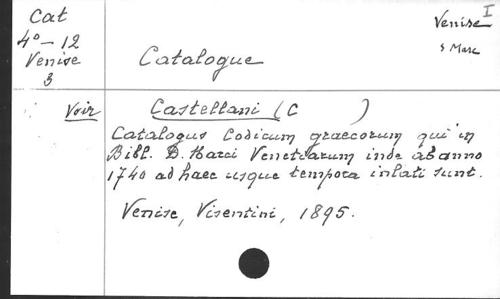 Cat
4° - 12
Venise
3
Catalogue
Venise I
S Marc
Voir
Castellani (C )
Catalogus Codicum graecorum qui in
Bibl. D. Marci Venetiarum inde ab anno
1740 ad haec usque tempora inlati sunt.
Venise, Visentini, 1895.